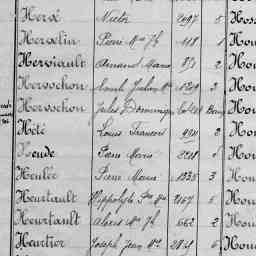 Hervé Victor 2097 5 Hos
Hervelin Pierre Mie Jh 118 1 Hou
Herviault Armand Marie 2 Hou
Hervochon Louis Julien 1209 3 Hou
Hervochon Jules Dominique Hou
Hété Louis François 2 Hou
Heude Pierre Marie 2218 5 Hou
Heulec Pierre Marie 1335 3 Hou
Heurtault Hippolyte 2167 5 Hou
Heurtault Alexis Mie Jh 662 2 Hou
Heurtier Joseph Jean Mie 5 Hou